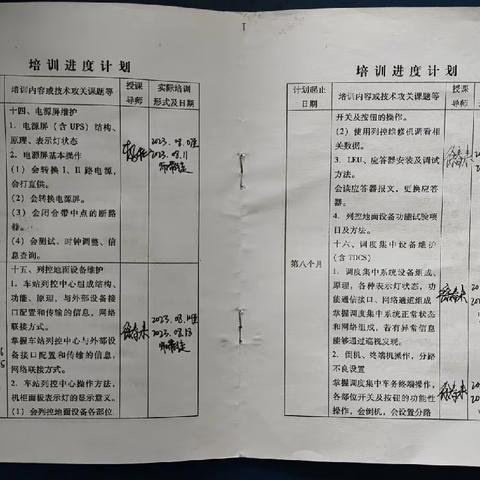 培训进度计划
培训内容或技术攻关课题等
授课
导师
实际培训
形式及日期
十四、电源屏维护
1. 电源屏（含 UPS）结构、
原理、表示灯状态
2. 电源屏基本操作
（1）会转换 I、II 路电源，
会打直供。
（2）会转换电源屏。
（3）会闭合带中点的断路
器。
（4）会测试、时钟调整、信
息查询。
2023.08.11
师带徒
十五、列控地面设备维护
1. 车站列控中心组成结构、
功能、原理，与外部设备接
口配置和传输的信息，网络
联接方式。
掌握车站列控中心与外部设
备接口配置和传输的信息，
网络联接方式。
2. 车站列控中心操作方法，
机柜面板表示灯的显示意义。
（1）会列控地面设备各部位
2023.08.13
师带徒
培训进度计划
计划起止
日期
培训内容或技术攻关课题等
授课
导师
第八个月
开关及按钮的操作。
（2）使用列控维修机调看相
关数据。
3. LEU、应答器安装及调试
方法。
会读应答器报文，更换应答
器。
4. 列控地面设备功能试验项
目及方法。
十六、调度集中设备维护
（含 TDCS）
1. 调度集中系统设备组成、
原理，各种表示灯状态，功
能通信接口、网络通道组成
掌握调度集中系统正常状态
和网络组成，若有异常信息
能够通过巡视发现。
2. 倒机、终端机操作，分路
不良设置
掌握调度集中车务终端操作，
各部位开关及按钮的功能性
操作，会倒机，会设置分路